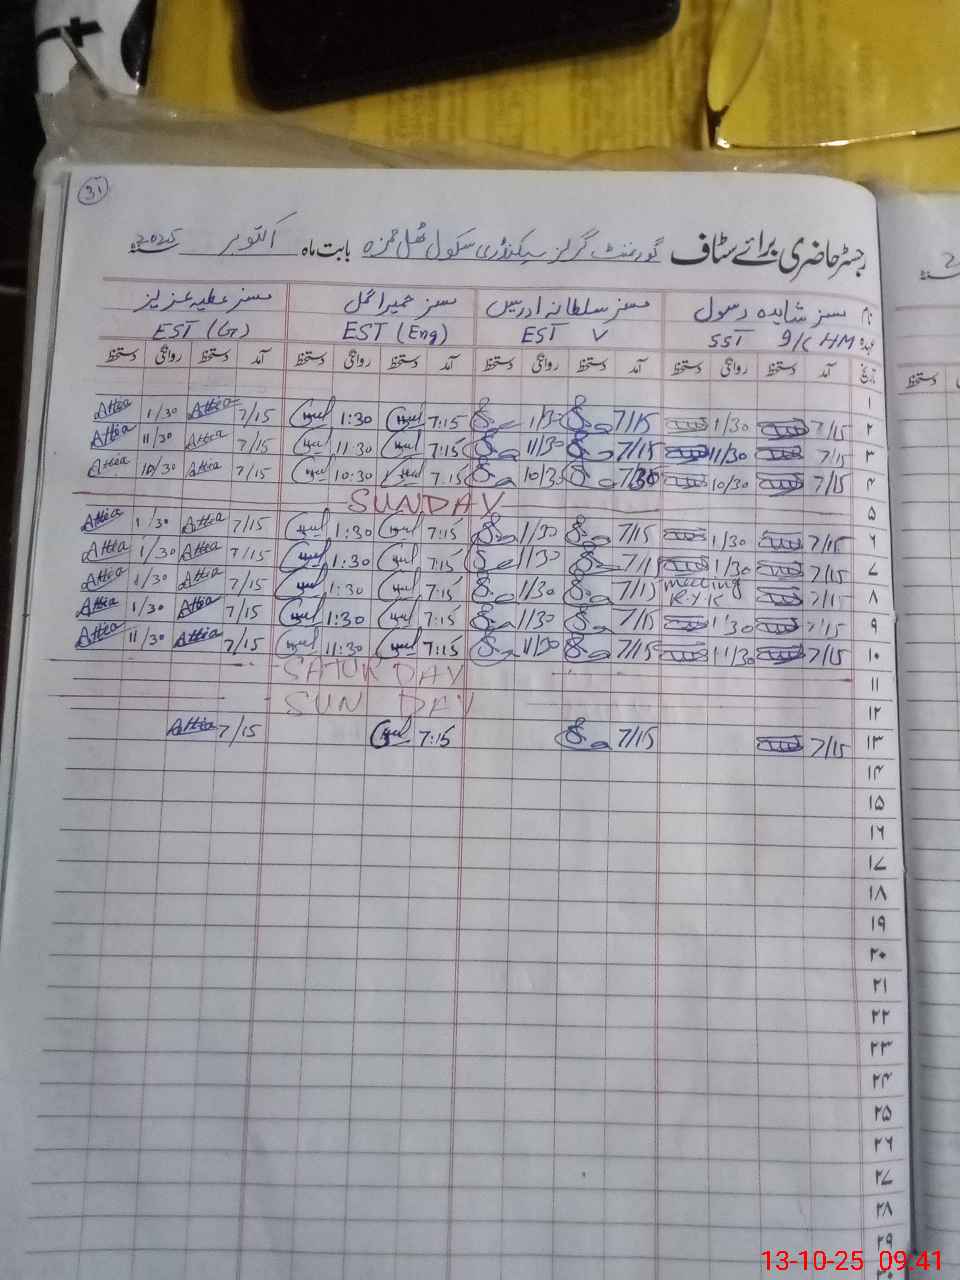 31
رجسٹر حاضری برائے سٹاف گورنمنٹ گرلز سیکنڈری سکول ٹھل حمزہ بابت ماہ اکتوبر 2025ء
نام مسز شاہدہ رسول مسز سلطانہ ادریس مسز حمیرا گل مسز عطیہ عزیز
عہدہ SST 9/C HM EST V EST (Eng) EST (Gr)
تاریخ آمد دستخط روانگی دستخط آمد دستخط روانگی دستخط آمد دستخط روانگی دستخط آمد دستخط روانگی دستخط
۱
۲ 7/15 1/30 7/15 1/30 7:15 1:30 7/15 Attia 1/30 Attia
۳ 7/15 11/30 7/15 11/30 7:15 11:30 7/15 Attia 11/30 Attia
۴ 7/15 10/30 7/30 10/30 7:15 10:30 7/15 Attia 10/30 Attia
۵ SUNDAY
۶ 7/15 1/30 7/15 1/30 7:15 1:30 7/15 Attia 1/30 Attia
۷ 7/15 1/30 7/15 1/30 7:15 1:30 7/15 Attia 1/30 Attia
۸ 7/15 meeting R.Y.K 7/15 1/30 7:15 1:30 7/15 Attia 1/30 Attia
۹ 7/15 1/30 7/15 1/30 7:15 1:30 7/15 Attia 1/30 Attia
۱۰ 7/15 11/30 7/15 11/30 7:15 11:30 7/15 Attia 11/30 Attia
۱۱ SATURDAY
۱۲ SUNDAY
۱۳ 7/15 7/15 7:15 7/15 Attia
۱۴
۱۵
۱۶
۱۷
۱۸
۱۹
۲۰
۲۱
۲۲
۲۳
۲۴
۲۵
۲۶
۲۷
۲۸
۲۹
۳۰
13-10-25 09:41